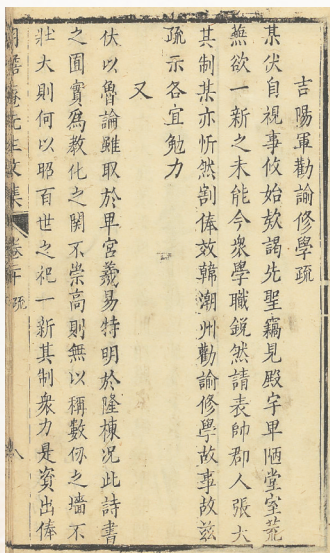 吉陽軍勸諭修學疏
某伏自視事攸始欬謁先聖竊見殿宇卑陋堂室荒
蕪欲一新之未能今衆學職銳然請表帥郡人張大
其制某亦忻然割俸效韓潮州勸諭修學故事故兹
疏示各宜勉力
又
伏以魯論雖取於卑宮羲易特明於隆棟況此詩書
之囿實爲教化之関不崇高則無以稱數仞之墻不
壯大則何以昭百世之祀一新其制衆力是資出俸
先生文集
卷之
疏